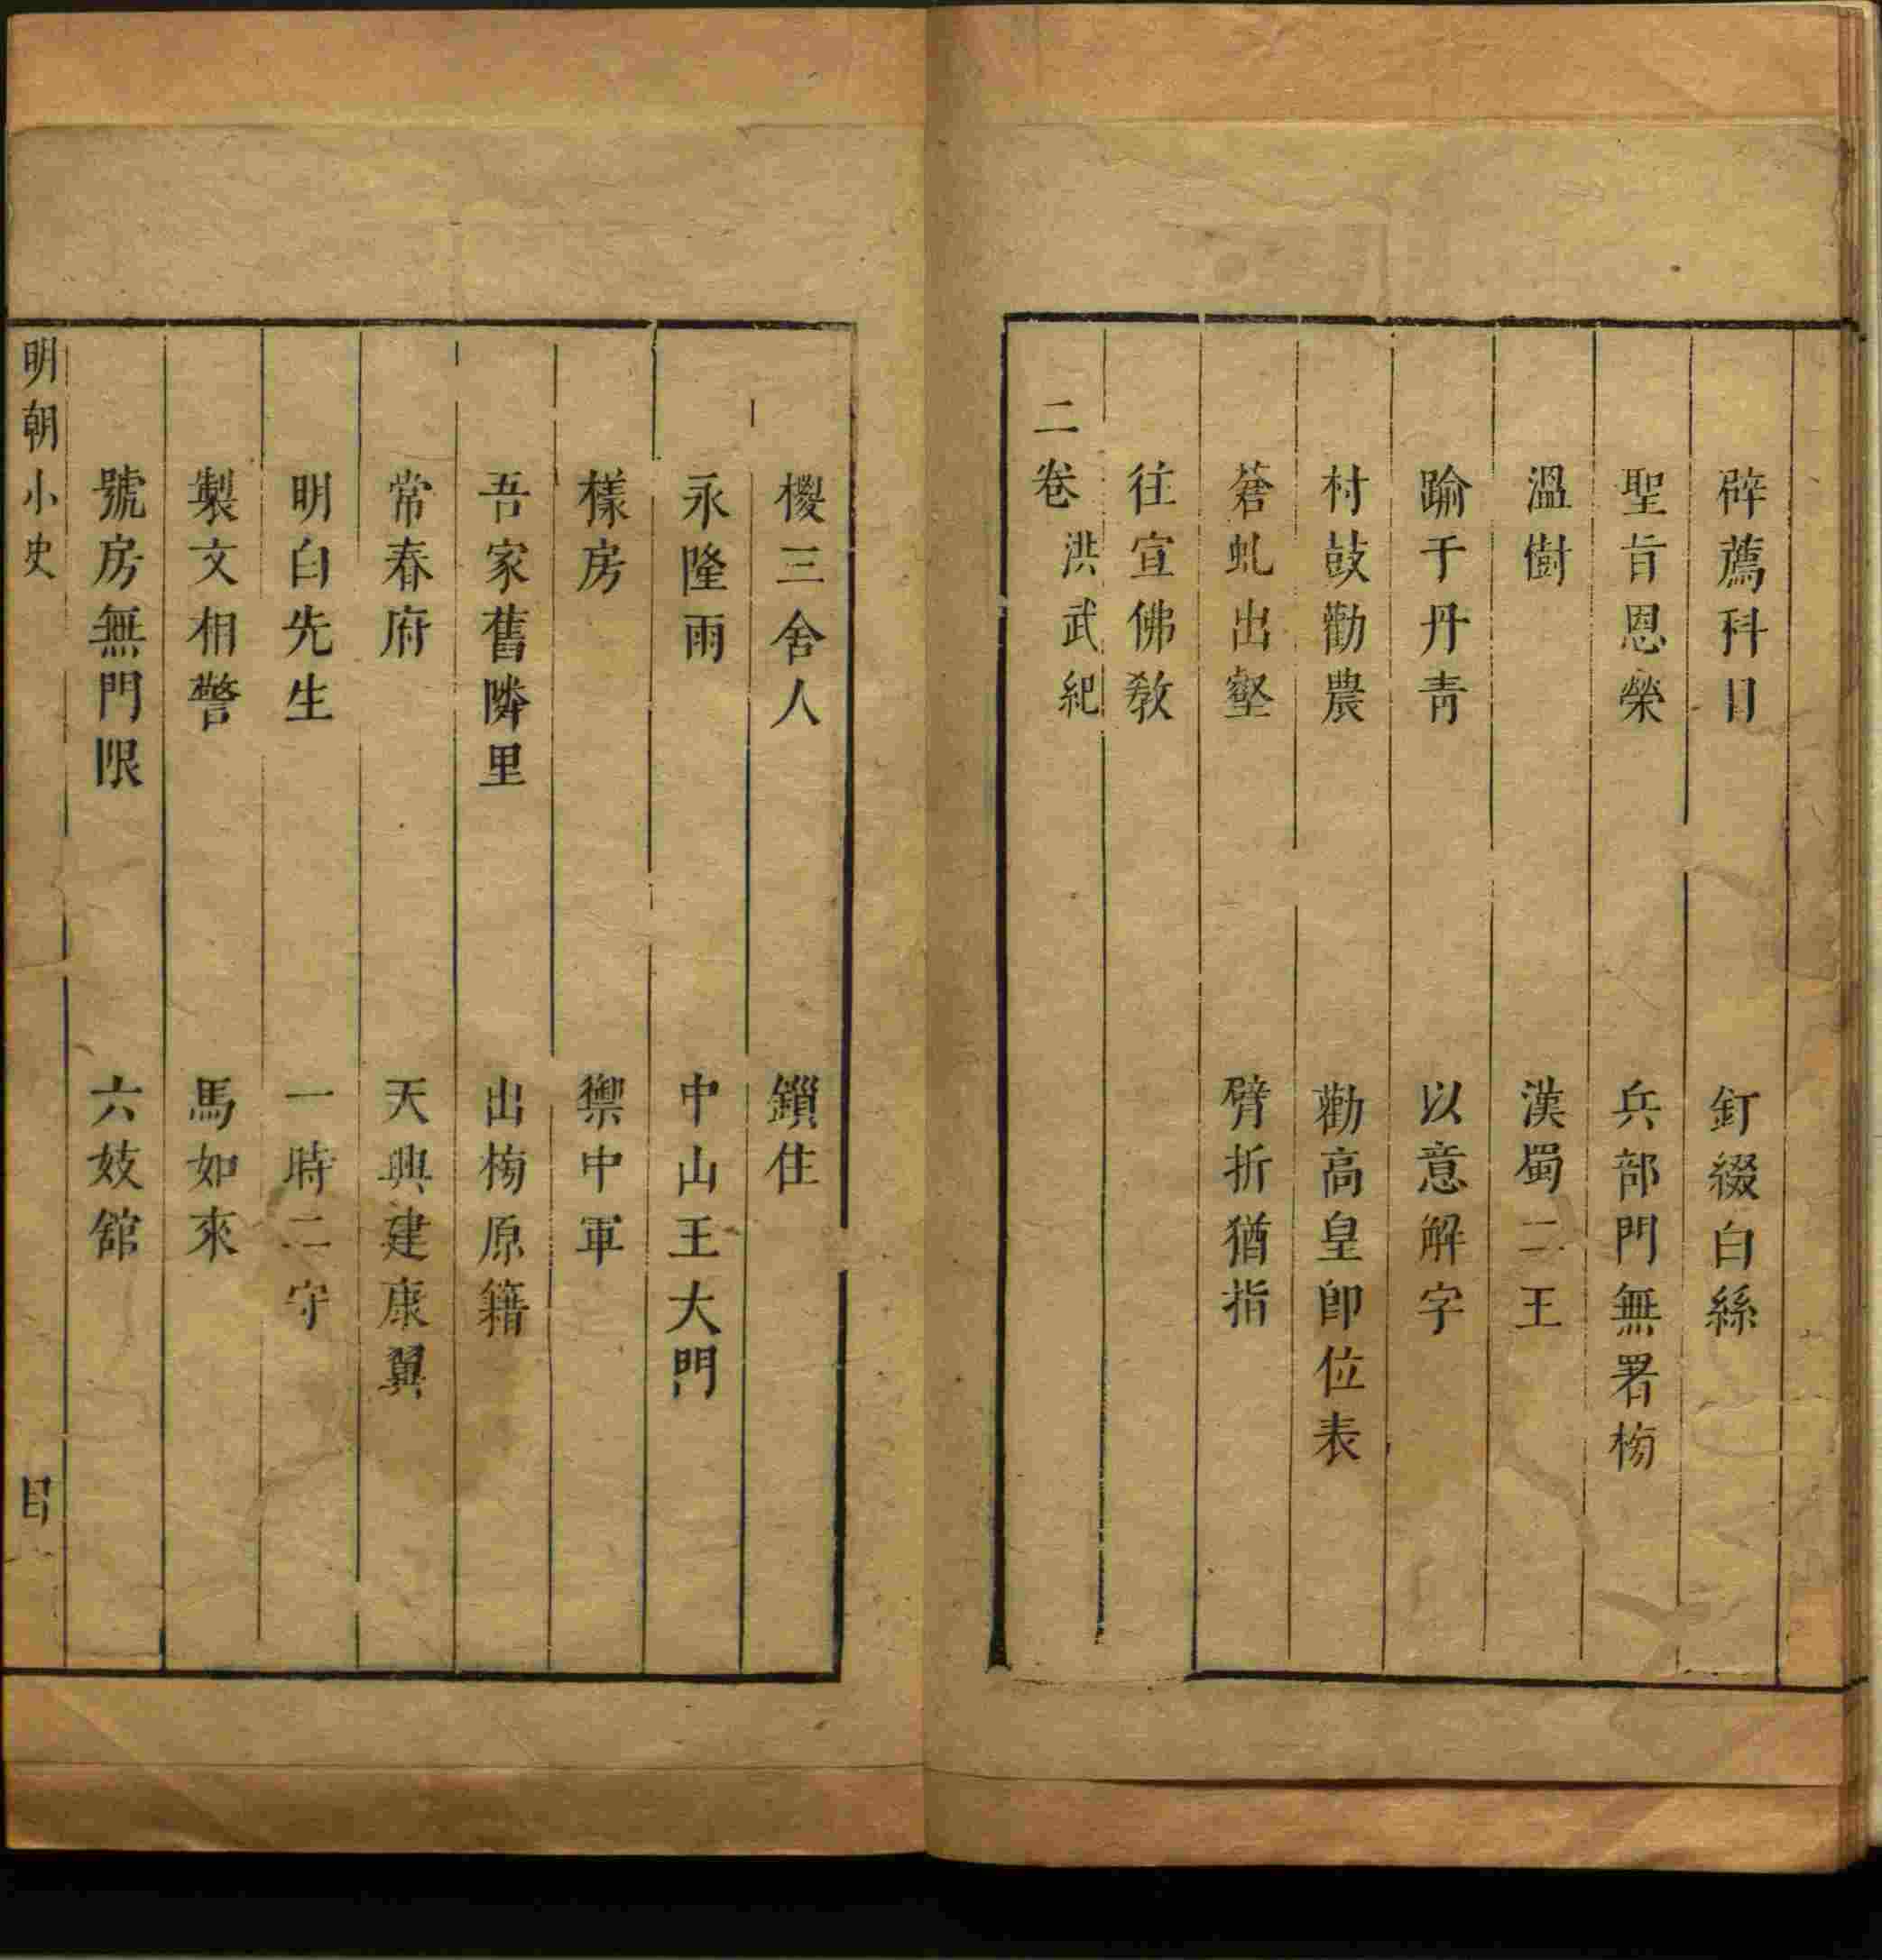 辟薦科目　釘綴白絲
聖旨恩榮　兵部門無署榜
溫樹　漢蜀二王
踰于丹青　以意解字
村鼓勸農　勸高皇卽位表
蒼虬出壑　臂折猶指
往宣佛教
二卷　洪武紀
㮨三舍人　鎖住
永隆雨　中山王大門
樣房　禦中軍
吾家舊隣里　出榜原籍
常春府　天興建康翼
明白先生　一時二守
製文相警　馬如來
號房無門限　六妓館
明朝小史　目